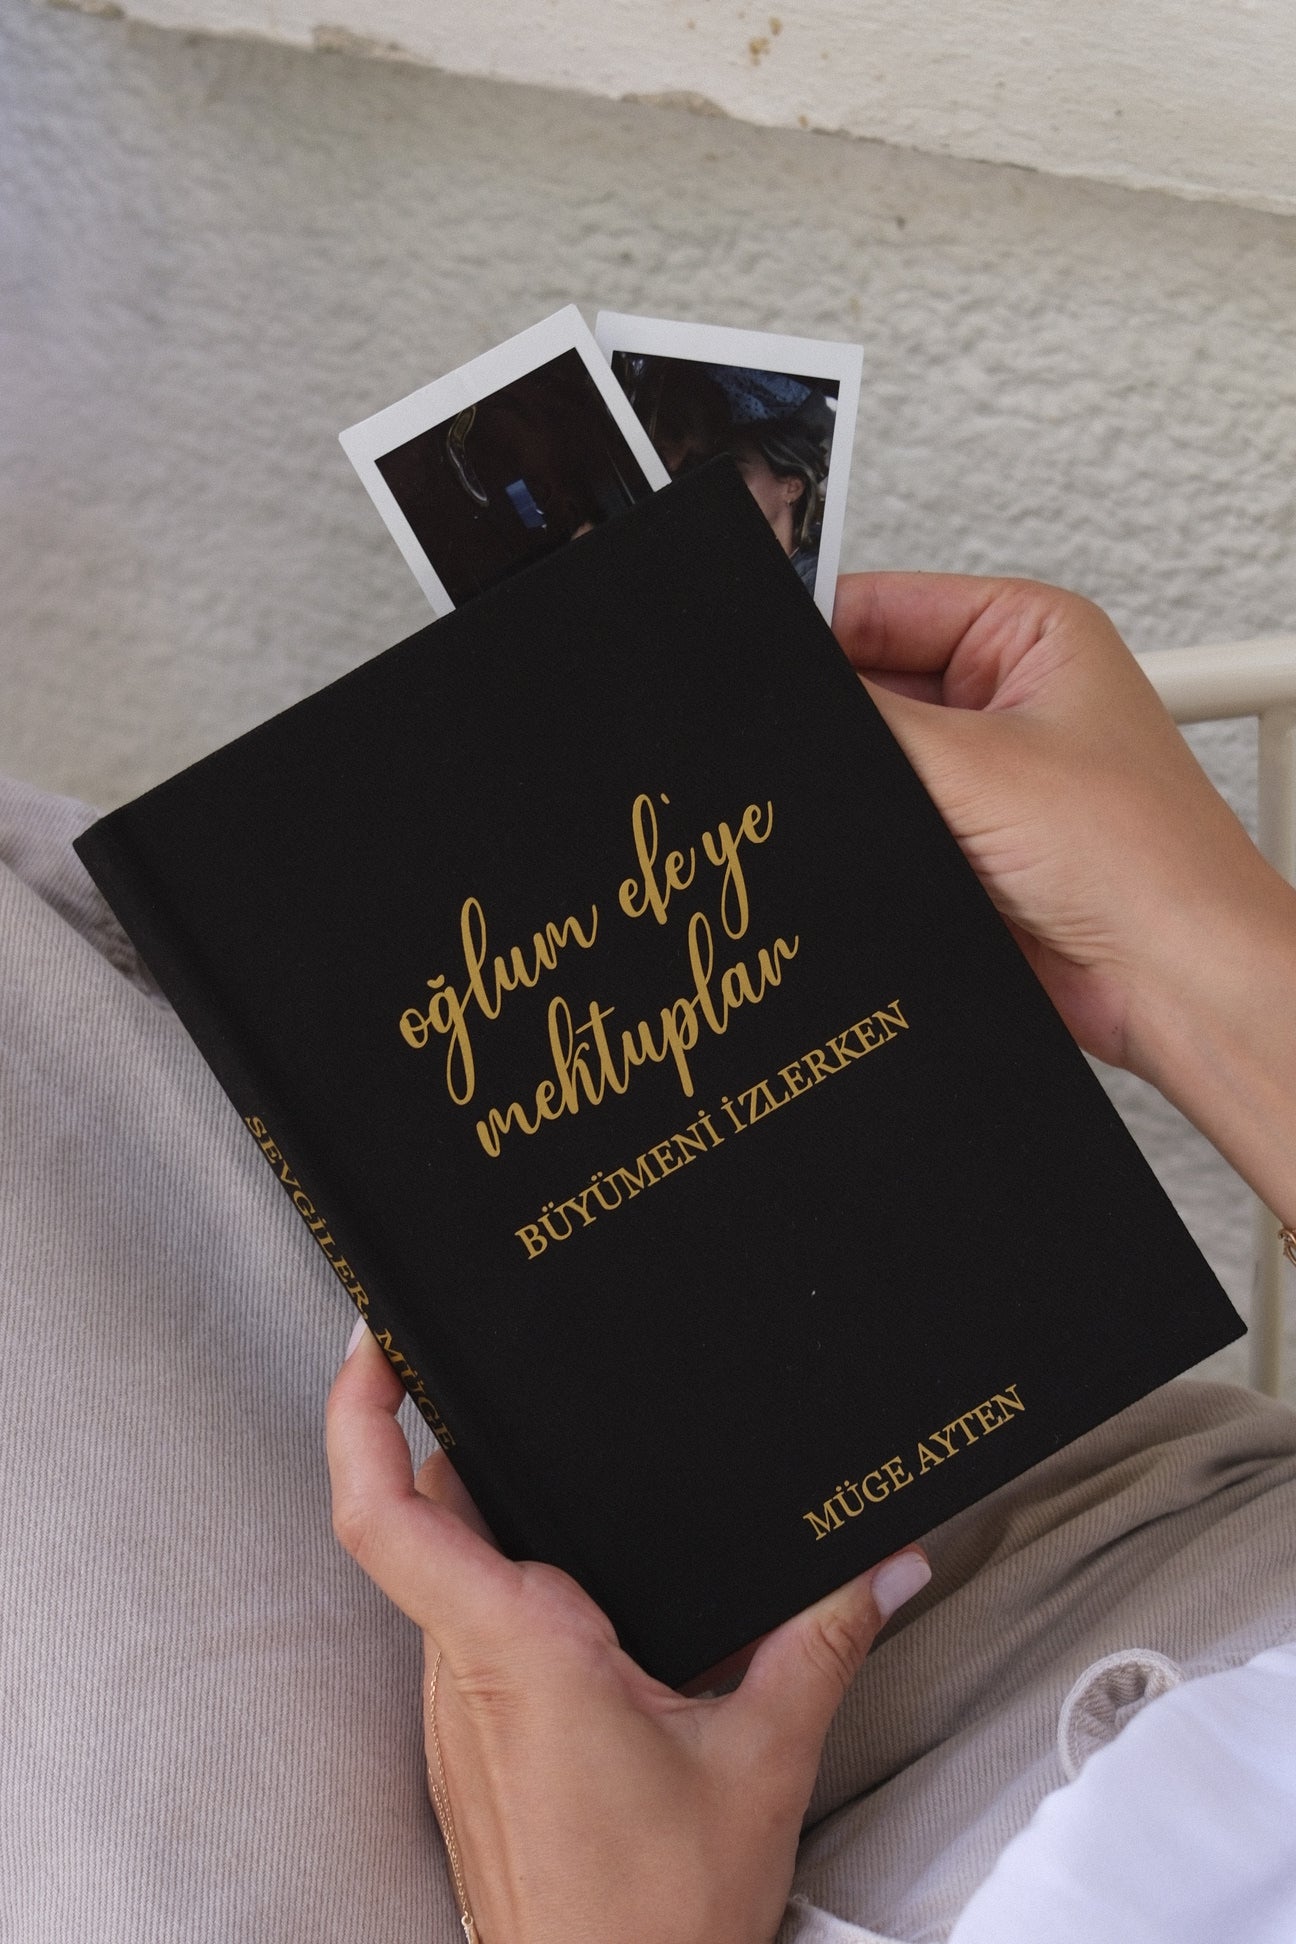 oğlum efe'ye
mektuplar
BÜYÜMENİ İZLERKEN
MÜGE AYTEN
SEVGİLER, MÜGE